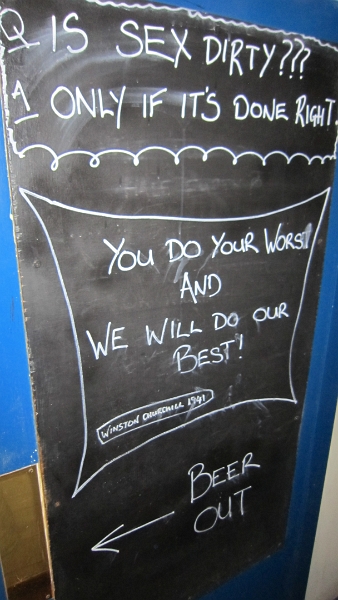 Q IS SEX DIRTY???
A ONLY IF IT'S DONE RIGHT.
YOU DO YOUR WORST
AND
WE WILL DO OUR
BEST!
WINSTON CHURCHILL 1941
BEER
OUT